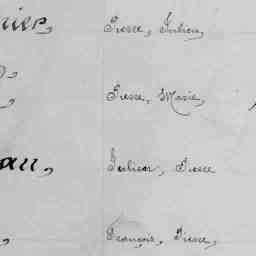 nier, Pierre, Julien,
,
Pierre, Marie,
au, Julien, Pierre
, François, Pierre,